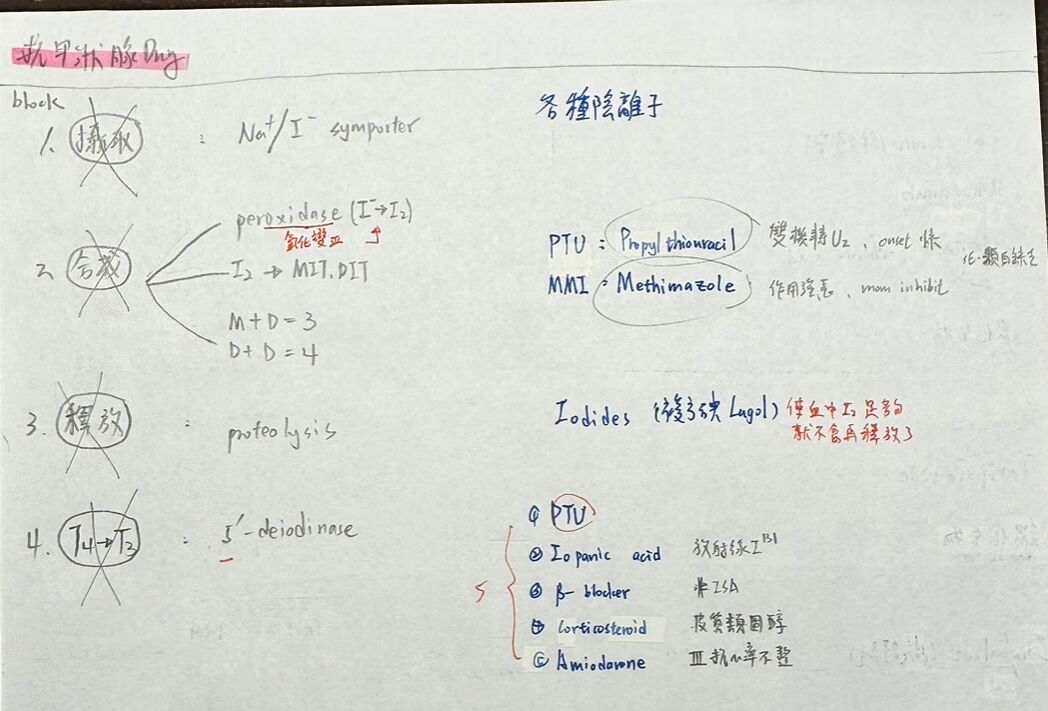 抗甲狀腺Drug
block
1. 攝取 : Na⁺/I⁻ symporter 各種陰離子
2. 合成
peroxidase (I⁻→I₂)
氧化變
I₂ → MIT.DIT
M+D=3
D+D=4
PTU : Propylthiouracil 雙機轉 、onset 快
MMI : Methimazole 作用強 、 inhibit
顆白缺乏
3. 釋放 : proteolysis Iodides (複方碘 Lugol) 使血中I₂足夠
就不會再釋放了
4. T₄→T₃ : 5'-deiodinase
5
① PTU
② Iopanic acid 放射線 I¹³¹
③ β-blocker 非ISA
④ Corticosteroid 皮質類固醇
⑤ Amiodarone III 抗心率不整